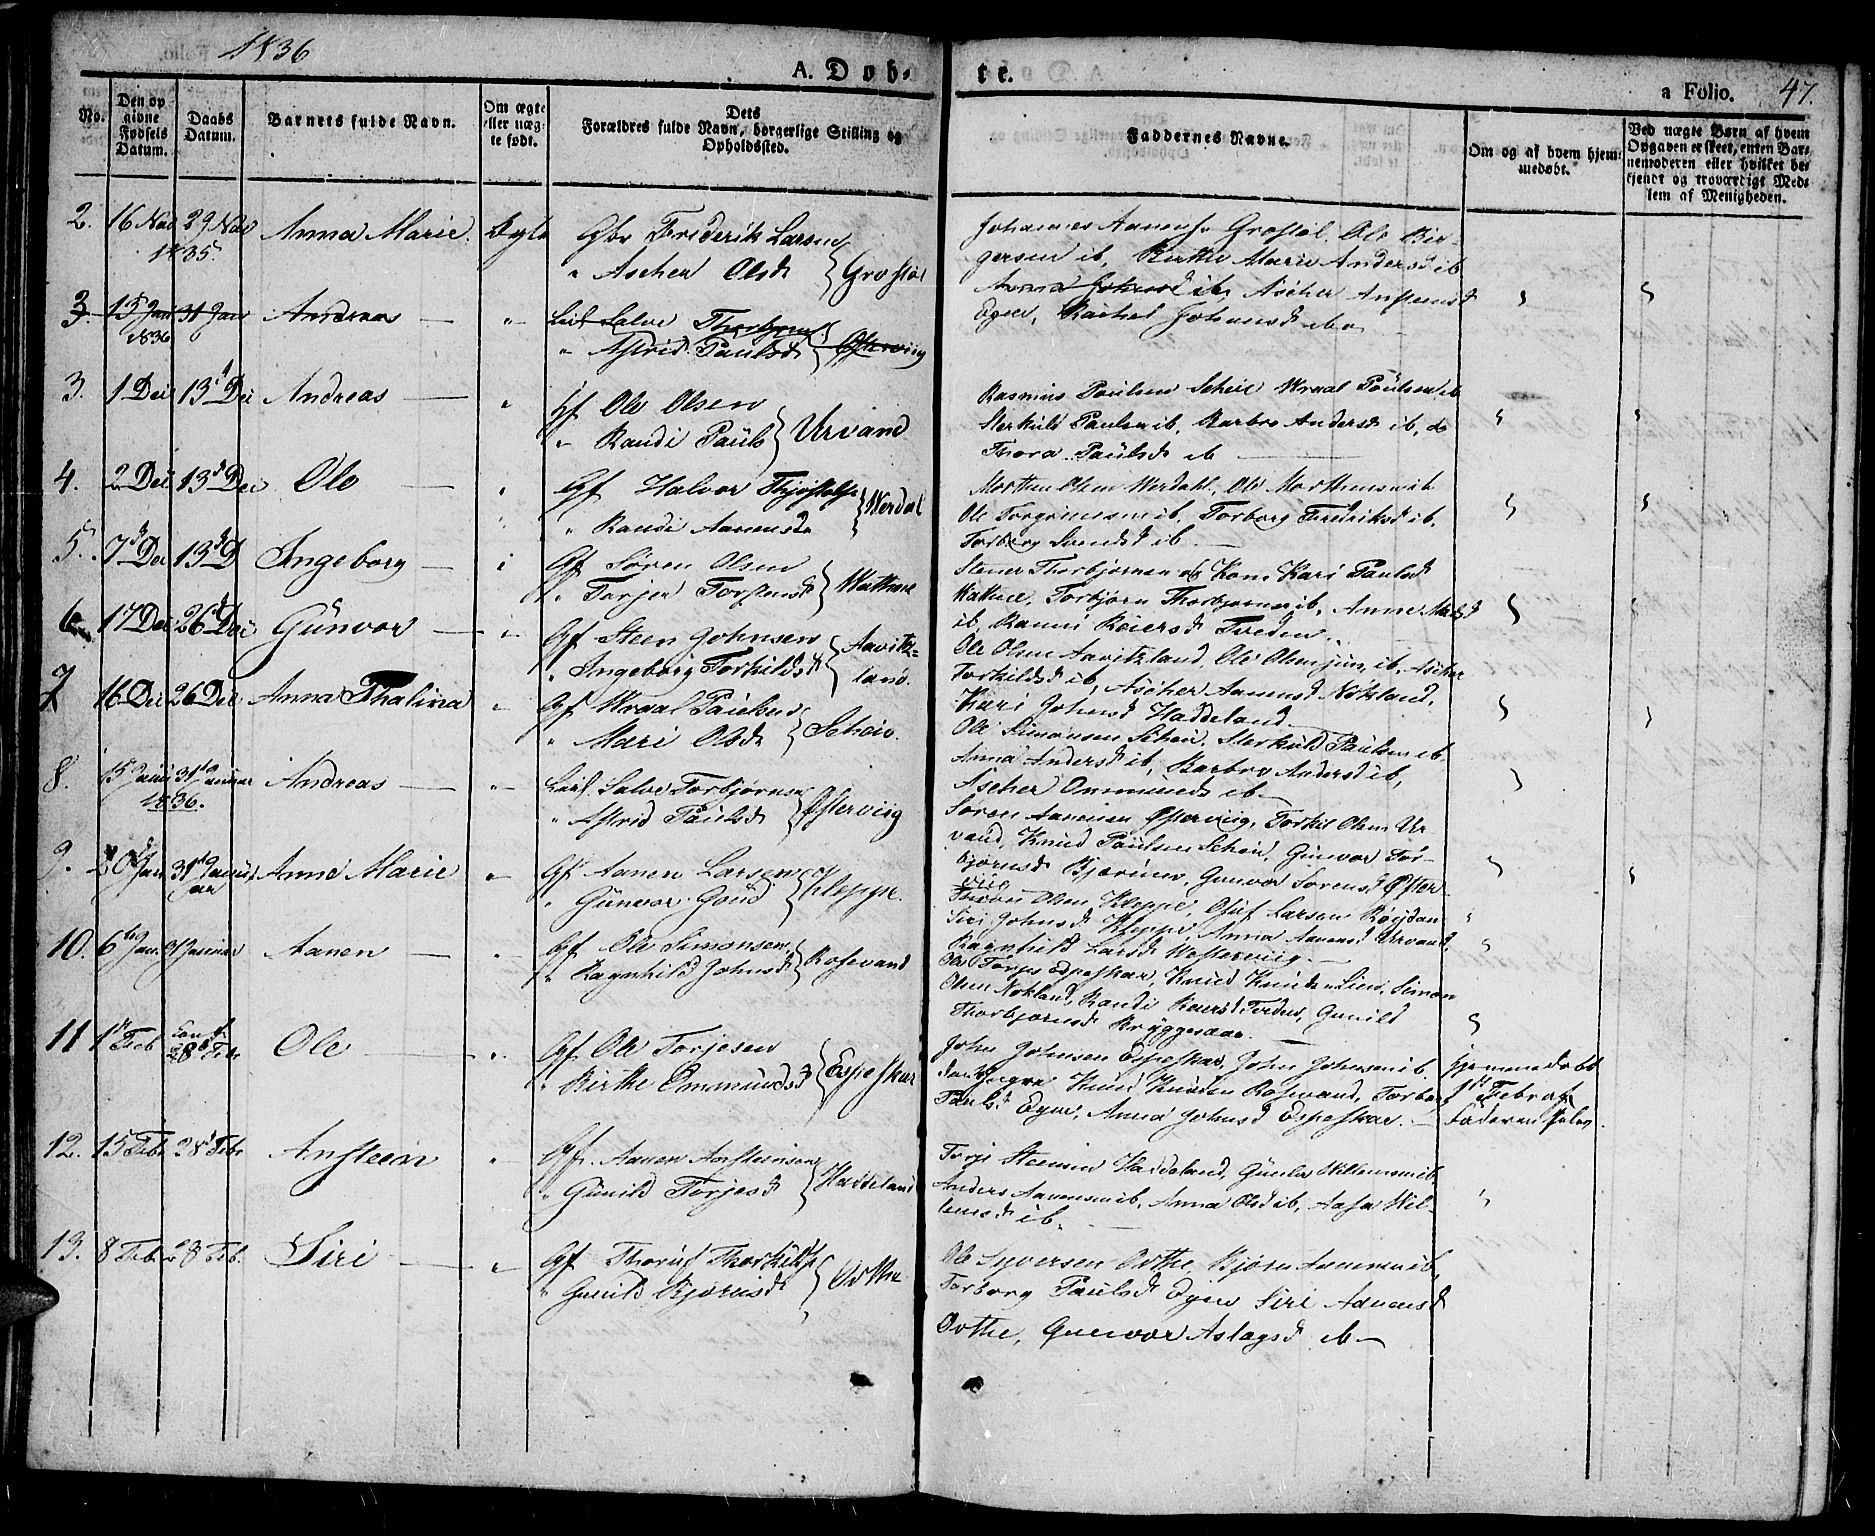 1836
A. Døb-
te.
a Folio. 47.
No.
Den op
givne
Fødsels
Datum.
Daabs
Datum.
Barnets fulde Navn.
Om ægte
eller uæg-
te født.
Dets
Forældres fulde Navn, borgerlige Stilling og
Opholdssted.
Faddernes Navne.
Om og af hvem hjem-
medøbt.
Ved uægte Børn af hvem
Opgaven er skeet, enten Bar-
nemoderen eller hvilket be-
kjendt og troværdigt Med-
lem af Menigheden.
2. 16 Nov 29 Nov Anna Marie. Ægte Gbr Frederik Larsen
1835.
" Ascher Olsd Grostøl
Johannes Aanens. Grostøl, Ole Bir-
gersen ib, Birthe Marie Andersd ib
Anna Johnsd ib, Ascher Anstensd
Egen, Rachel Johnsd ib
3. 15 Jan 31 Jan Andreas " Leil Salve Thorbjørns.
1836
" Astrid Paulsd Østerviig
3. 1 Dec 13 Dec Andreas " Gf Ole Olsen
" Randi Pauls Urvand
Rasmus Paulsen Scheie Wraal Paulsen ib
Sterkuld Paulsen ib, Barbro Andersd ib,
Thora Paulsd ib
4. 2 Dec 13 Dec Ole " Gf Halvor Thjøstolvs.
" Randi Aanensd Werdal
Morthen Olsen Werdahl, Ole Morthensen ib
Ole Torgrimsen ib, Torborg Fredriksd ib,
Torborg Svendsd ib
5. 7 Dec 13 D Ingeborg Gf Søren Olsen
" Torjer Torstensd Watne
Stener Thorbjørnsen og Kone Kari Paulsd
Watne, Torbjørn Thorbjørnsen ib, Anne
ib, Rannei Reiersd Tveden
6 17 Dec 26 Dec Gunvor " Gf Steen Johnsen
" Ingeborg Torkildsd Aavitz-
land.
Ole Olsen Aavitzland, Ole Olsen jun. ib, Ascher
Torkildsd ib, Ascher Aanensd Nökland,
Kari Johnsd Haddeland
7 16 Dec 26 Dec Anna Thalina " Gf Wraal Paulsen
" Mari Olsd Scheie.
Ole Simonsen Scheie, Sterkuld Paulsen ib
Anna Andersd ib, Barbro Andersd ib,
Ascher Ommundsd ib
8. 15 Januar 31 Januar Andreas " Leil. Salve Torbjørnsen
1836.
" Astrid Paulsd Østerviig
Søren Aanensen Østerviig, Torkil Olsen Ur-
vand, Knud Paulsen Scheie, Gunvor Tor-
bjørnsd Bjørnnes, Gunvor Sørensd Øster
viig
9. 20 Jan 31 Janu
ar Anne Marie " Gf Aanen Larsen
" Gunvor Kleppe.
Olsen Kleppe, Oluf Larsen
Siri Johnsd Kleppe, Anna Aanensd Urvand,
Ragnhild Larsd Westerviig
10. 6 Jan. 31 Januar Aanen " Gf Ole Simonsen
" Ragnhild Johnsd Rosevand
Ole Torjes. Espeskar, Knud Knudsen Lien, Simon
Olsen Nökland, Randi Reiersd Tveden, Gunild
Thorbjørnsd Bryggesaae
11 1 Feb 28 Feb Ole " Gf Ole Torjesen
" Birthe Ommundsd Espeskar
John Johnsen Espeskar, John Johnsen ib
den Yngre Knud Knudsen Rosevand, Torborg
Paulsd Egen, Anna Johnsd Espeskar.
Hjemmedøbt
1 Febr af
Faderen selv.
12. 15 Feb. 28 Feb. Ansteen " Gf. Aanen Ansteensen
" Gunild Torjesd Haddeland
Torje Steensen Haddeland, Gunlev Willumsen ib.
Anders Aanensen ib, Anna Olsd ib, Aasa Wil-
lumsd ib.
13. 8 Feb. 28 Feb. Siri " Gf Thoruf Thorkilds.
" Gunild Bjørnsd Ovthe
Ole Syversen Ovthe, Bjørn Aanensen ib,
Torborg Paulsd Egen Siri Aanensd
Ovthe, Gunvor Aslagsd ib